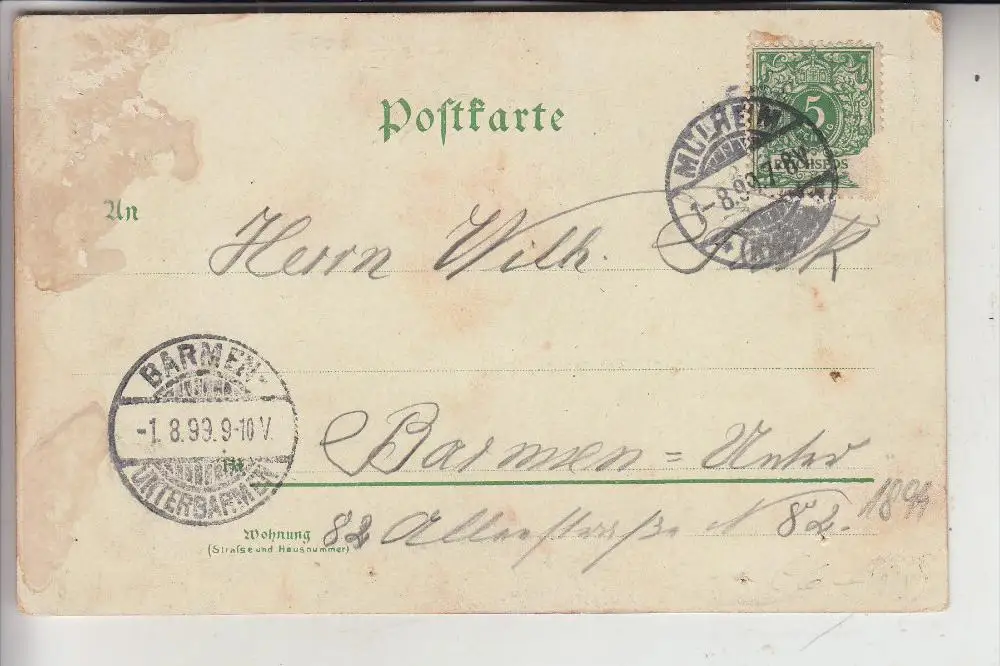 Postkarte
5
PFENNIG
REICHSPOS
MÜLHEIM
1-8.99.7-8V.
An
Herrn Wilh.
BARMEN-
-1.8.99.9-10V.
UNTERBARMEN
in
Barmen=Unter
Wohnung
(Straſse und Hausnummer)
82 Alleestraße N 82.
1899